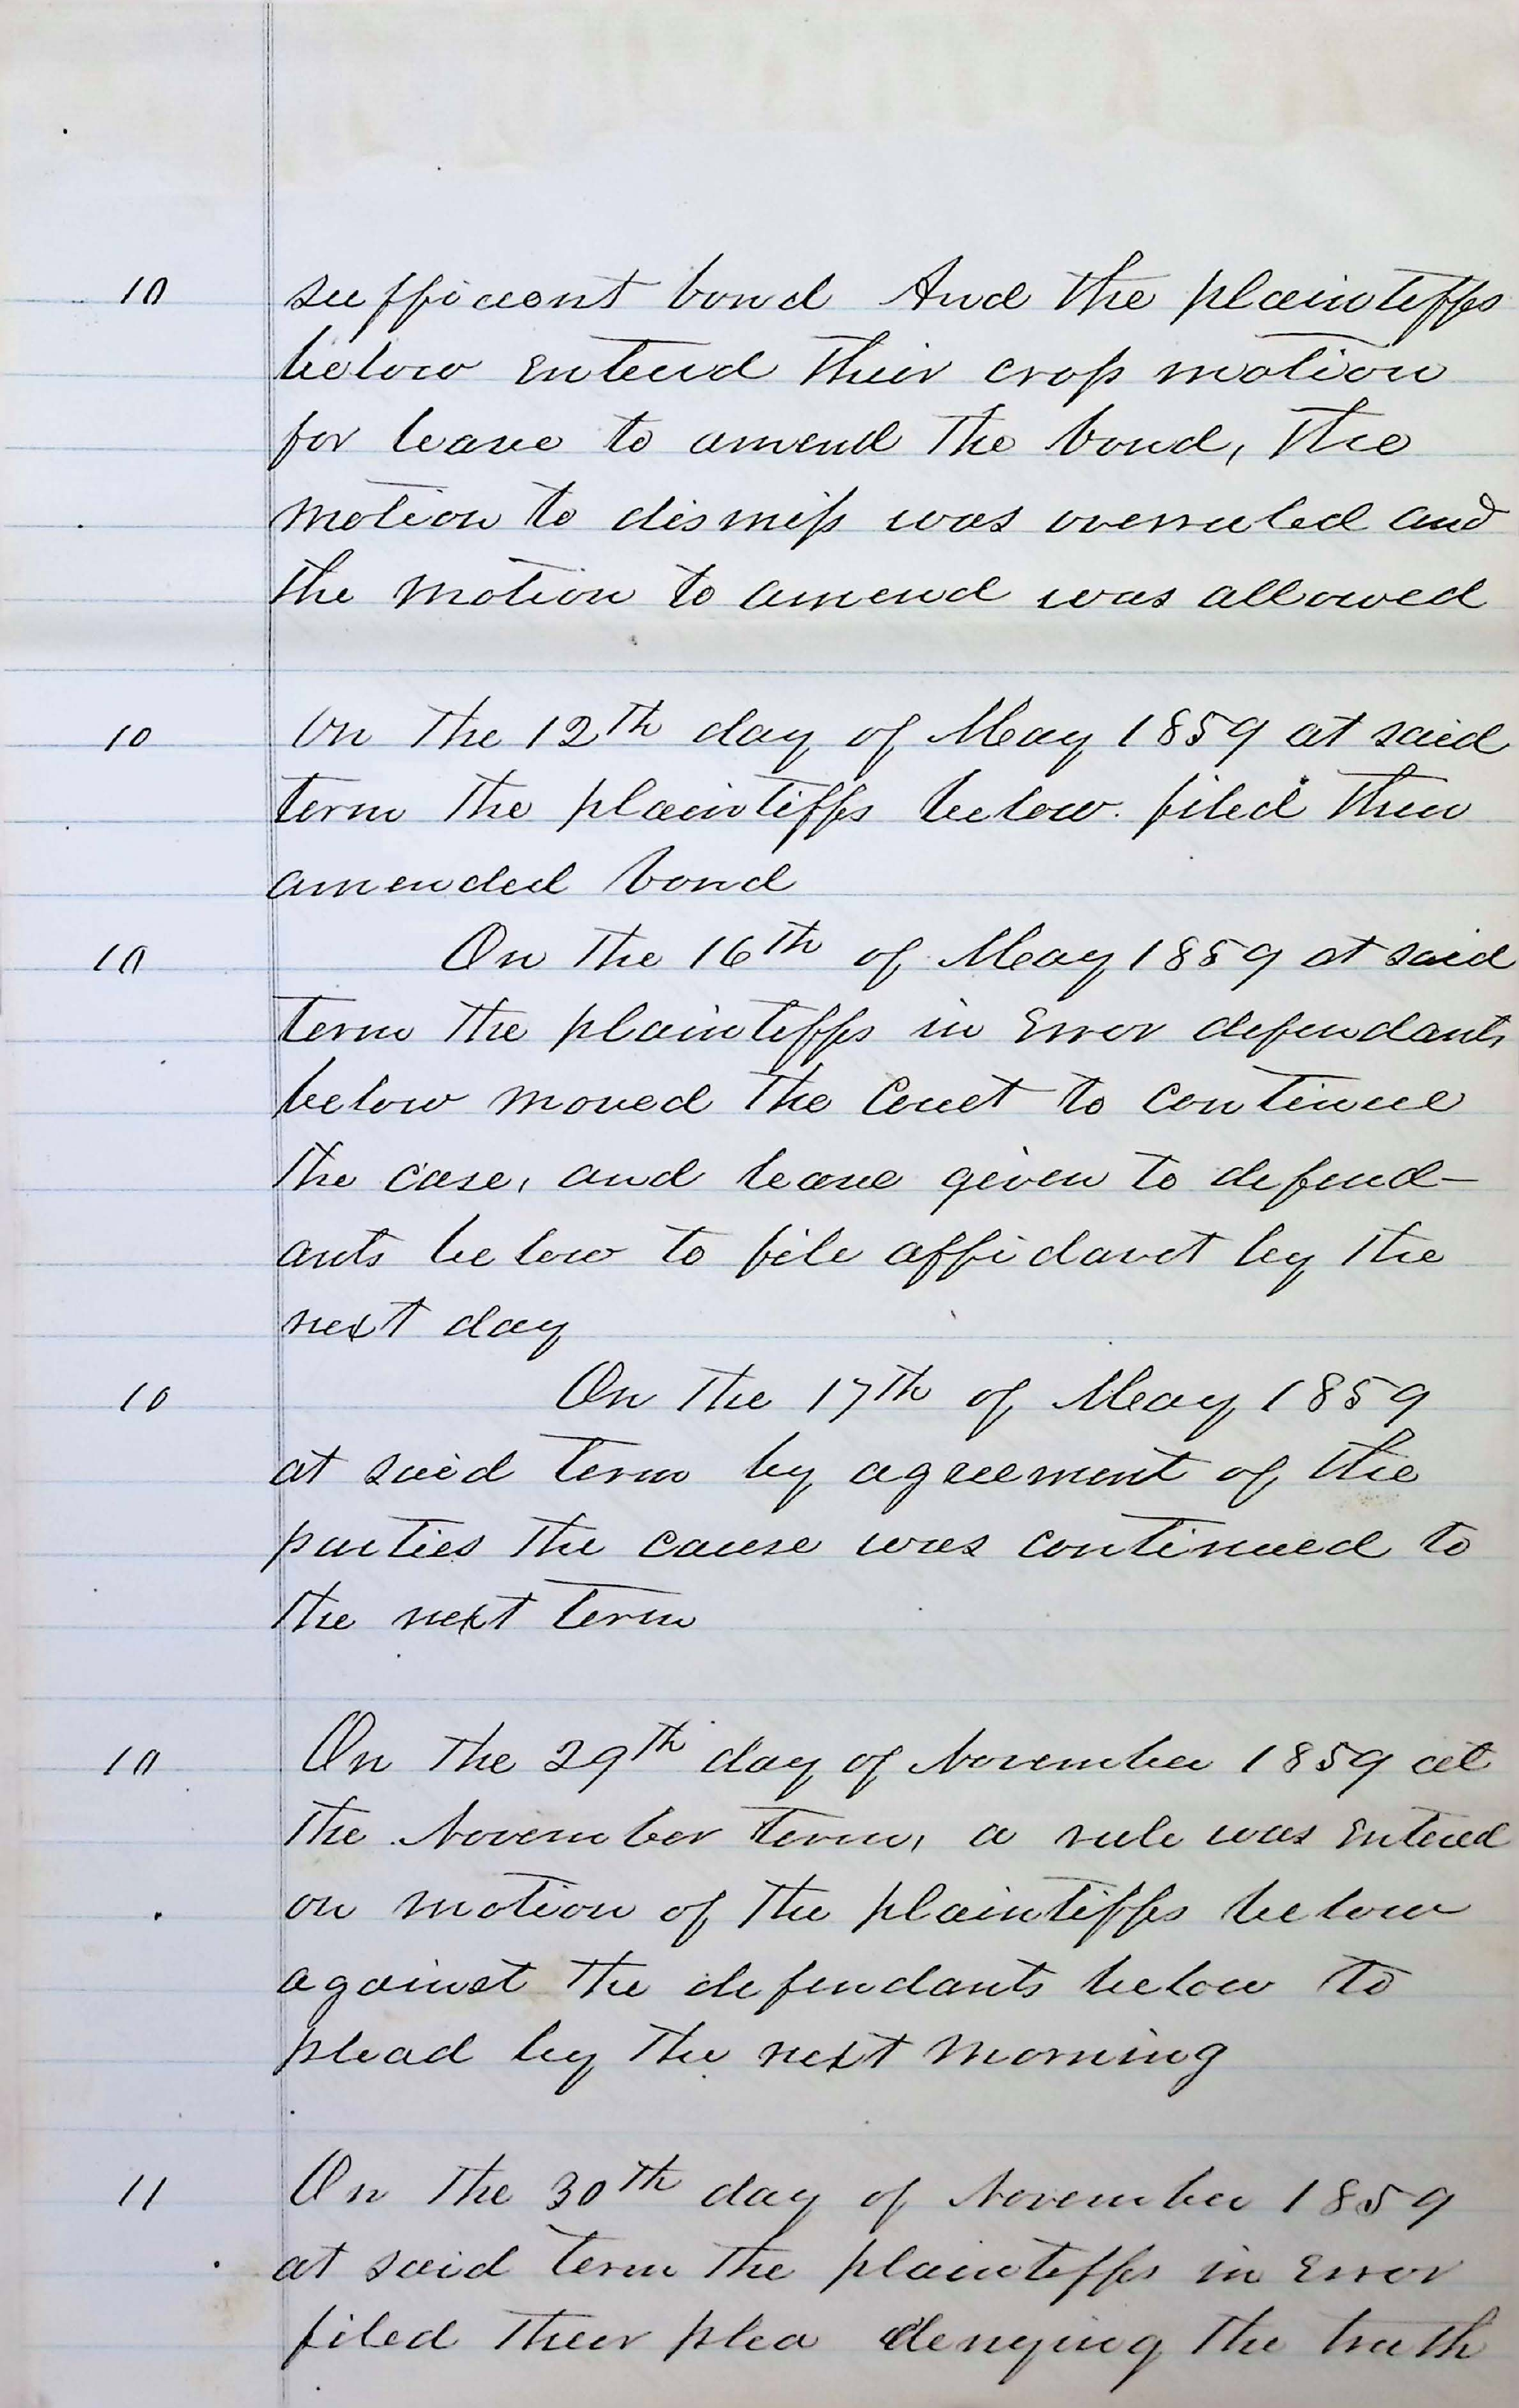 10 sufficent bond And the plaintiffs
below entered their cross motion
for leave to amend the bond, the
motion to dismiss was overruled and
the motion to amend was allowed
10 On the 12th day of May 1859 at said
term the plaintiffs below filed their
amended bond
10 On the 16th of May 1859 at said
term the plaintiffs in Error defendants
below moved the Court to continue
the case, and leave given to defend-
ants below to file affidavit by the
next day
10 On the 17th of May 1859
at said term by agreement of the
parties the cause was continued to
the next term
10 On the 29th day of November 1859 at
the November term, a rule was entered
on motion of the plaintiffs below
against the defendants below to
plead by the next morning
11 On the 30th day of November 1859
at said term the plaintiffs in Error
filed their plea denying the truth